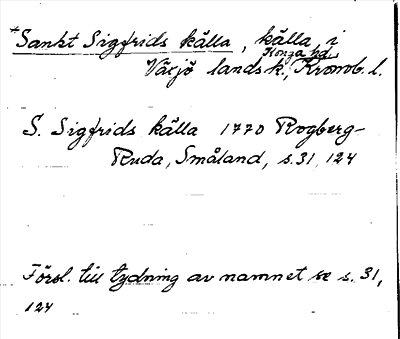 *Sankt Sigfrids källa, källa i
Konga hd.,
Växjö landsk., Kronob. l.
S. Sigfrids källa 1770 Rogberg-
Ruda, Småland, s. 31, 124
Försl. till tydning av namnet se s. 31,
124